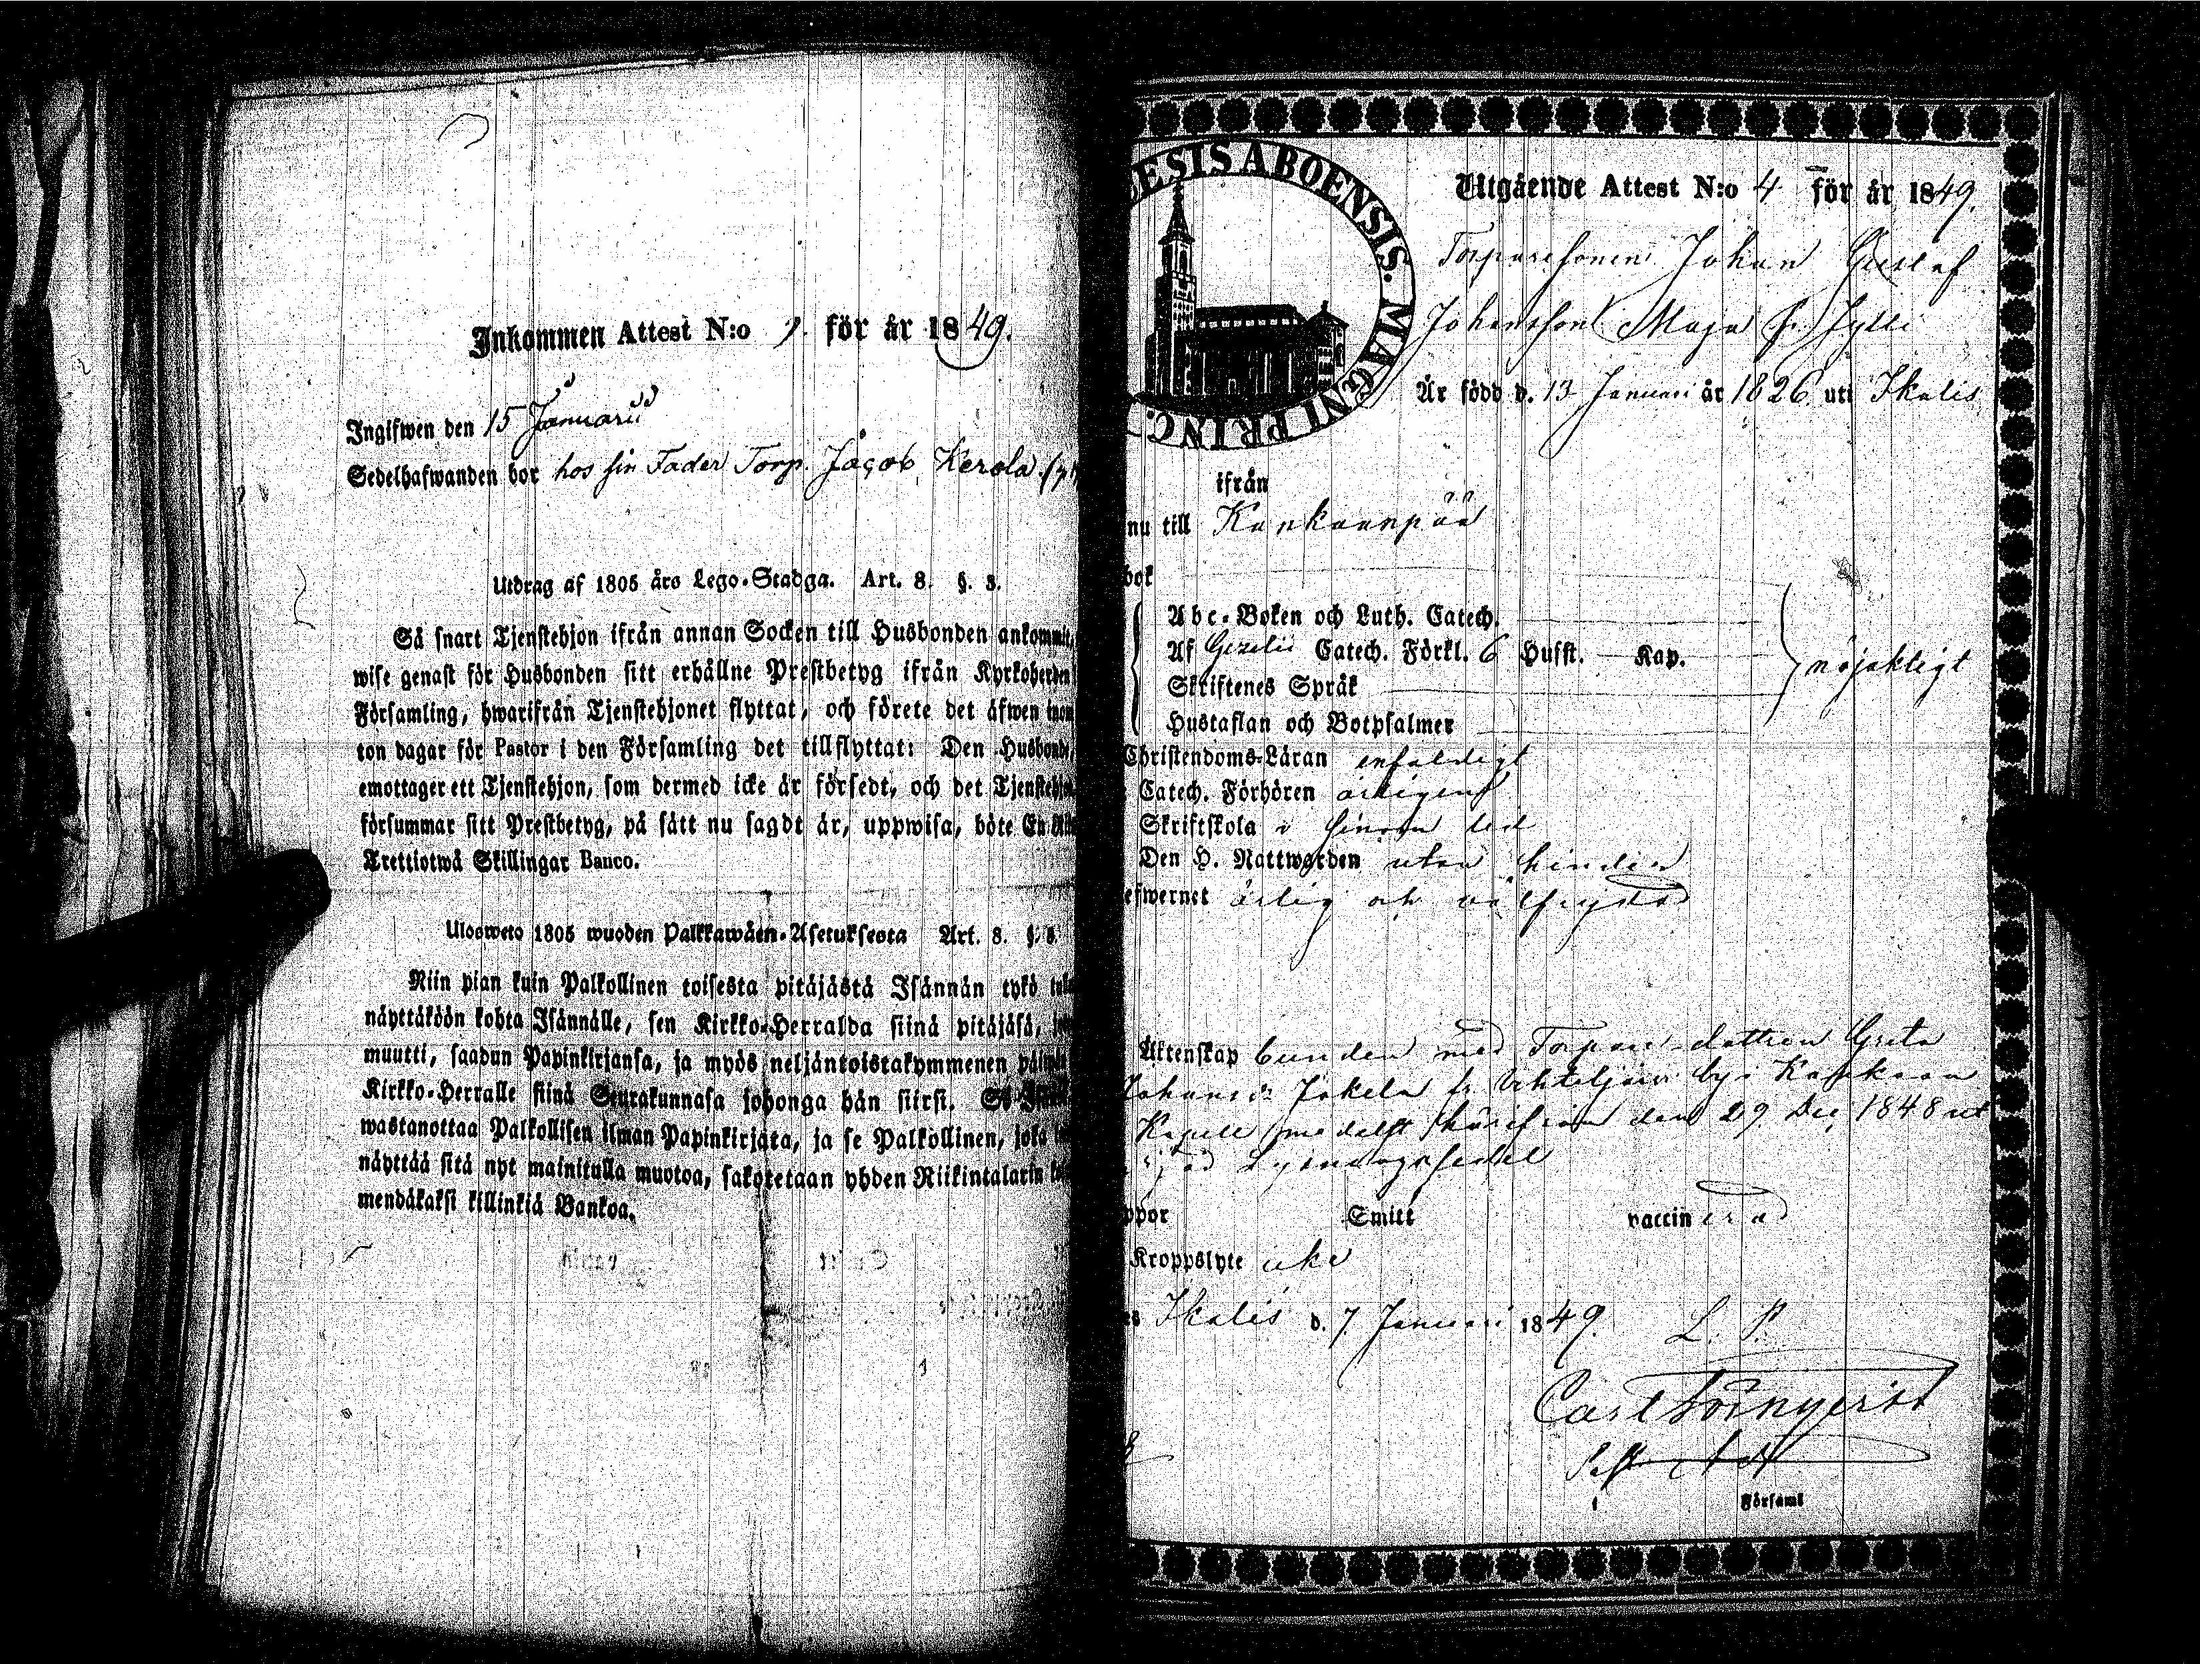 Inkommen Attest N:o 9. för år 1849.
Ingifwen den 15 Januarii
Sedelhafwanden bor hos sin Fader Torp. Jacob Kerola
Utdrag af 1805 års Lego-Stadga. Art. 8. §. 3.
Så snart Tjenstehjon ifrån annan Socken till Husbonden ankommit,
wise genast för Husbonden sitt erhållne Prestbetyg ifrån Kyrkoherden
Församling, hwarifrån Tjenstehjonet flyttat, och förete det äfwen
ton dagar för Pastor i den Församling det tillflyttat: Den Husbonde,
emottager ett Tjenstehjon, som dermed icke är försedt, och det Tjenstehjon
försummar sitt Prestbetyg, på sätt nu sagdt är, uppwisa, böte En
Trettiotwå Skillingar Banco.
Ulosweto 1805 wuoden Palkkawäen-Asetuksesta Art. 8. §. 3.
Niin pian kuin Palkollinen toisesta pitäjästä Isännän tykö
näyttäköön kohta Isännälle, sen Kirkko-Herralda siinä pitäjäsä,
muutti, saadun Papinkirjansa, ja myös neljäntoistakymmenen
Kirkko-Herralle siinä Seurakunnasa johonga hän siirsi. Se
wastanottaa Palkollisen ilman Papinkirjata, ja se Palkollinen, joka
näyttää sitä nyt mainitulla muotoa, sakotetaan yhden Riikintalarin
mendäkaksi killinkiä Bankoa.
ESIS ABOENSIS. MAGNI PRINC.
Utgående Attest N:o 4 för år 1849.
Torparesonen Johan Gustaf
Johansson Maja fr. Jylli
Är född d. 13 Januari år 1826 uti Ikalis
ifrån
nu till Kankaanpää
bok
Abc-Boken och Luth. Catech.
Af Gezelii Catech. Förkl. 6 Hufst. Kap.
nöjaktigt
Skriftenes Språk
Hustaflan och Botpsalmer
Christendoms-Läran enfaldigt
Catech. Förhören årligen
Skriftskola i sinom tid
Den H. Nattwarden utan hinder
efwernet ärlig och välfrejdad
Äktenskap bunden med Torpare-dottren Greta
Johans d:r Jokela fr. Vihteljärvi by i Kankaan
Kapell medelst härifrån den 29 Dec 1848 ut
Lysningssedel
ppor Smitt vaccinerad
Kroppslyte icke
Ikalis d. 7 Januari 1849. L. P.
Carl
Past. Adj
i Församl